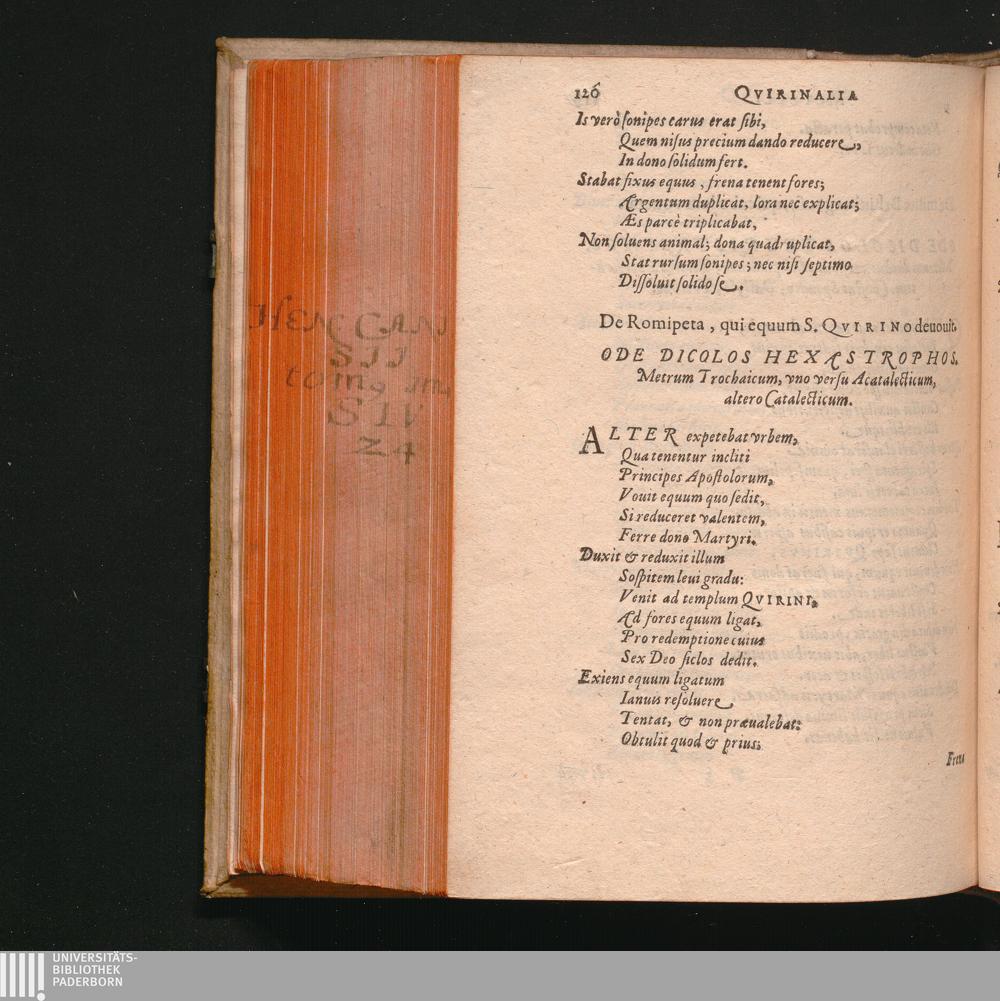 126 QVIRINALIA
Is verò ſonipes carus erat ſibi,
Quem niſus precium dando reducere,
In dono ſolidum fert.
Stabat fixus equus, frena tenent fores;
Argentum duplicat, lora nec explicat;
Æs parcè triplicabat,
Non ſoluens animal; dona quadruplicat,
Stat rurſum ſonipes; nec niſi ſeptimo
Diſſoluit ſolido ſe.
De Romipeta, qui equum S. QVIRINO deuouit.
ODE DICOLOS HEXASTROPHOS.
Metrum Trochaicum, vno verſu Acatalecticum,
altero Catalecticum.
ALTER expetebat vrbem,
Qua tenentur incliti
Principes Apoſtolorum,
Vouit equum quo ſedit,
Si reduceret valentem,
Ferre dono Martyri.
Duxit & reduxit illum
Soſpitem leui gradu:
Venit ad templum QVIRINI,
Ad fores equum ligat,
Pro redemptione cuius
Sex Deo ſiclos dedit.
Exiens equum ligatum
Ianuis reſoluere
Tentat, & non præualebat:
Obtulit quod & prius;
Frena
HEN CANI
SII
tom, in,
SIV
24
UNIVERSITÄTS-
BIBLIOTHEK
PADERBORN